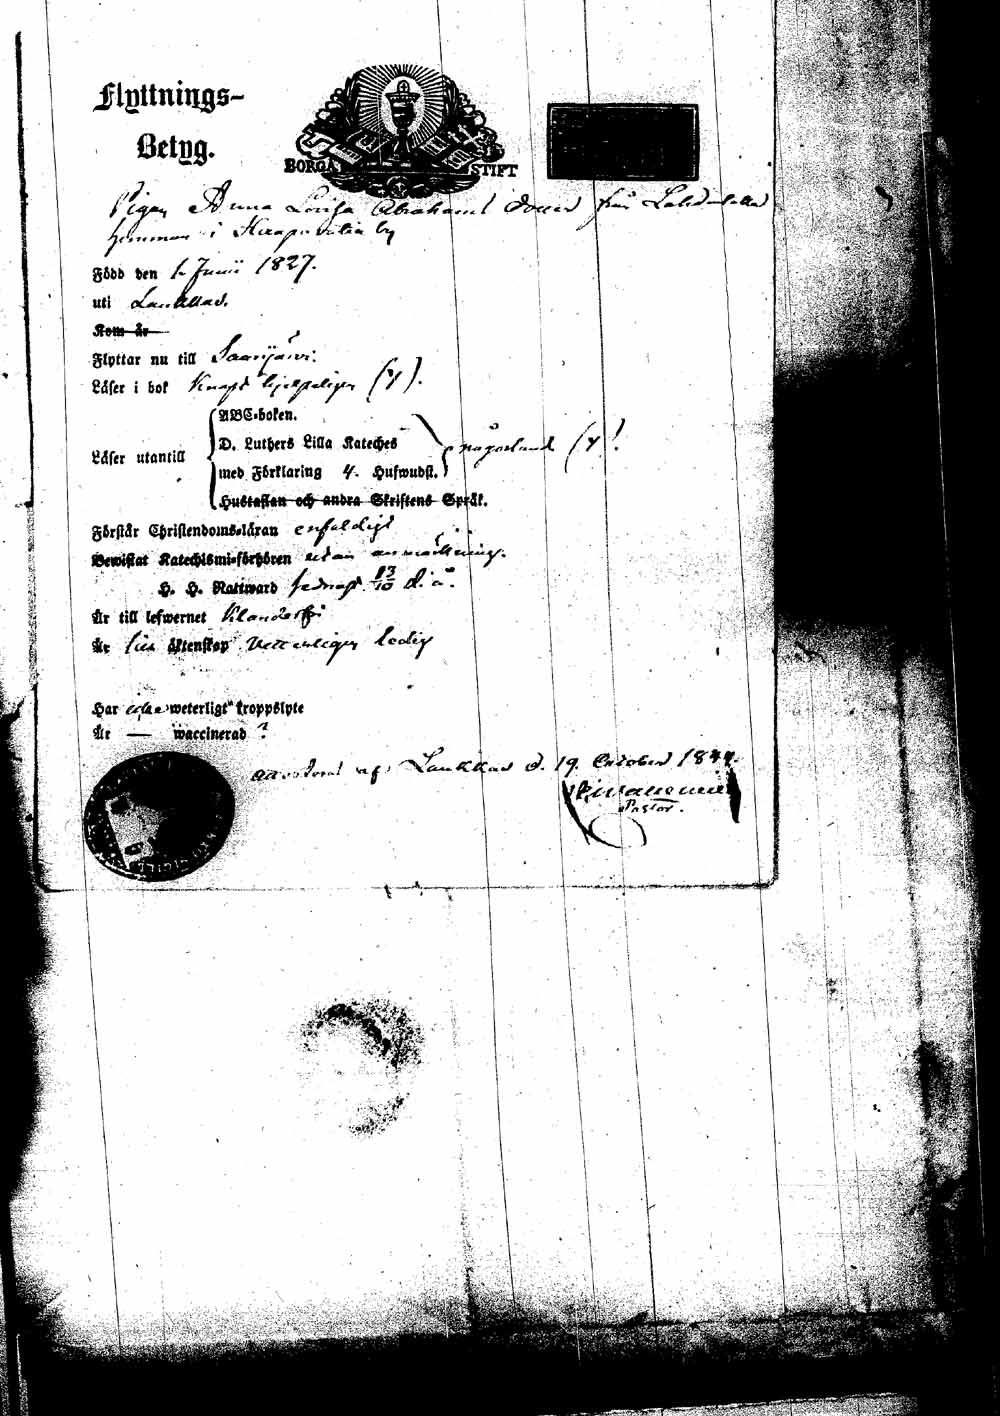 Flyttnings-
Betyg.
BORGÅ STIFT
Pigan Anna Lovisa Abrahams doter från
hemman i by
Född den 1 Junii 1827.
uti Laukkas.
Kom år
Flyttar nu till Saarijärvi.
Läser i bok Knapt hjelpeligen (y).
ABC-boken.
D. Luthers Lilla Kateches
Läser utantill någorlunda (y)!
med Förklaring 4. Hufwudst.
Hustaflan och andra Skriftens Språk.
Förstår Christendoms-läran enfaldigt
Bewistat Katechismi-förhören utan anmärkning.
H. H. Nattward sednast 13/10 d. å.
Är till lefwernet Klanderfri
Är äktenskap Vetterligen ledig
Har icke weterligt kroppslyte
Är — waccinerad ?
Laukkas d. 19. October 1844.
Pastor.